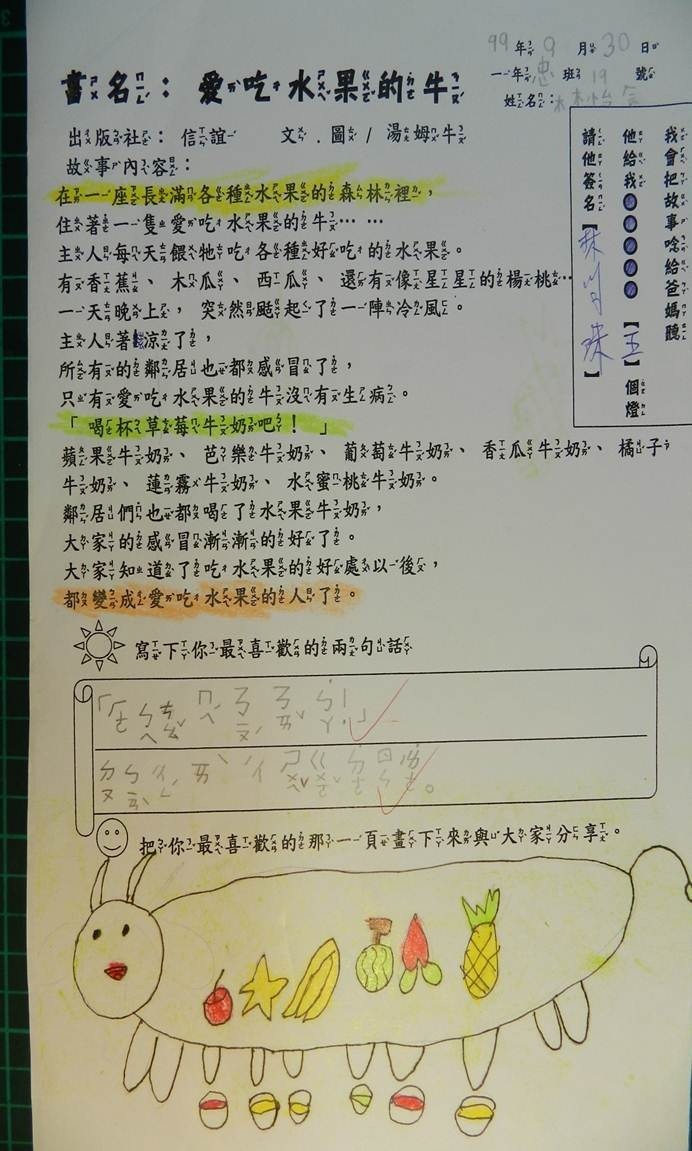 99年9月30日
一年忠班19號
書名：愛吃水果的牛
姓名：林怡
出版社：信誼 文．圖/湯姆牛
故事內容：
在一座長滿各種水果的森林裡，
住著一隻愛吃水果的牛……
主人每天餵牠吃各種好吃的水果。
有香蕉、木瓜、西瓜、還有像星星星的楊桃…
一天晚上，突然颳起了一陣冷風。
主人著涼了，
所有的鄰居也都感冒了，
只有愛吃水果的牛沒有生病。
「喝杯草莓牛奶吧！」
蘋果牛奶、芭樂牛奶、葡萄牛奶、香瓜牛奶、橘子
牛奶、蓮霧牛奶、水蜜桃牛奶。
鄰居們也都喝了水果牛奶，
大家的感冒漸漸的好了。
大家知道了吃水果的好處以後，
都變成愛吃水果的人了。
我會把故事唸給爸媽聽
他給我【五】個燈
請他簽名【林 珠】
寫下你最喜歡的兩句話
把你最喜歡的那一頁畫下來與大家分享。